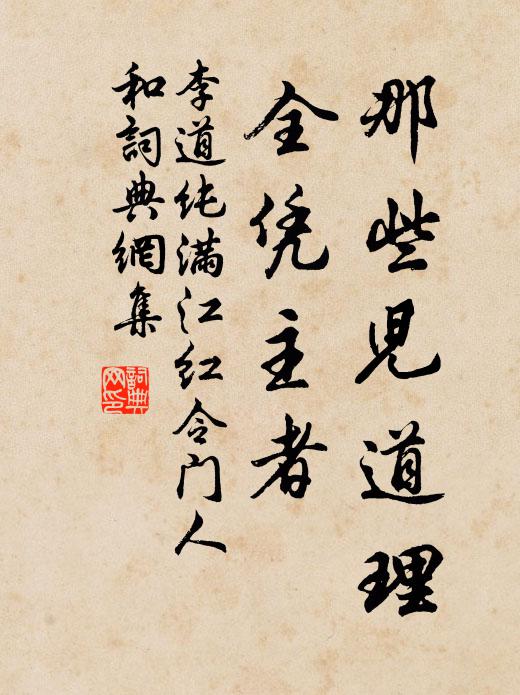 那些兒道理
全凭主者
李道纯满江红令门人
和詞典網集
詞典
网印